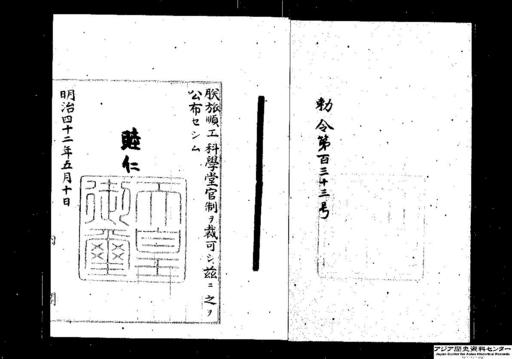 勅令第百三十三号
朕旅順工科學堂官制ヲ裁可シ茲ニ之ヲ
公布セシム
睦仁
天皇
御璽
明治四十二年五月十日
内閣
アジア歴史資料センター
Japan Center for Asian Historical Records